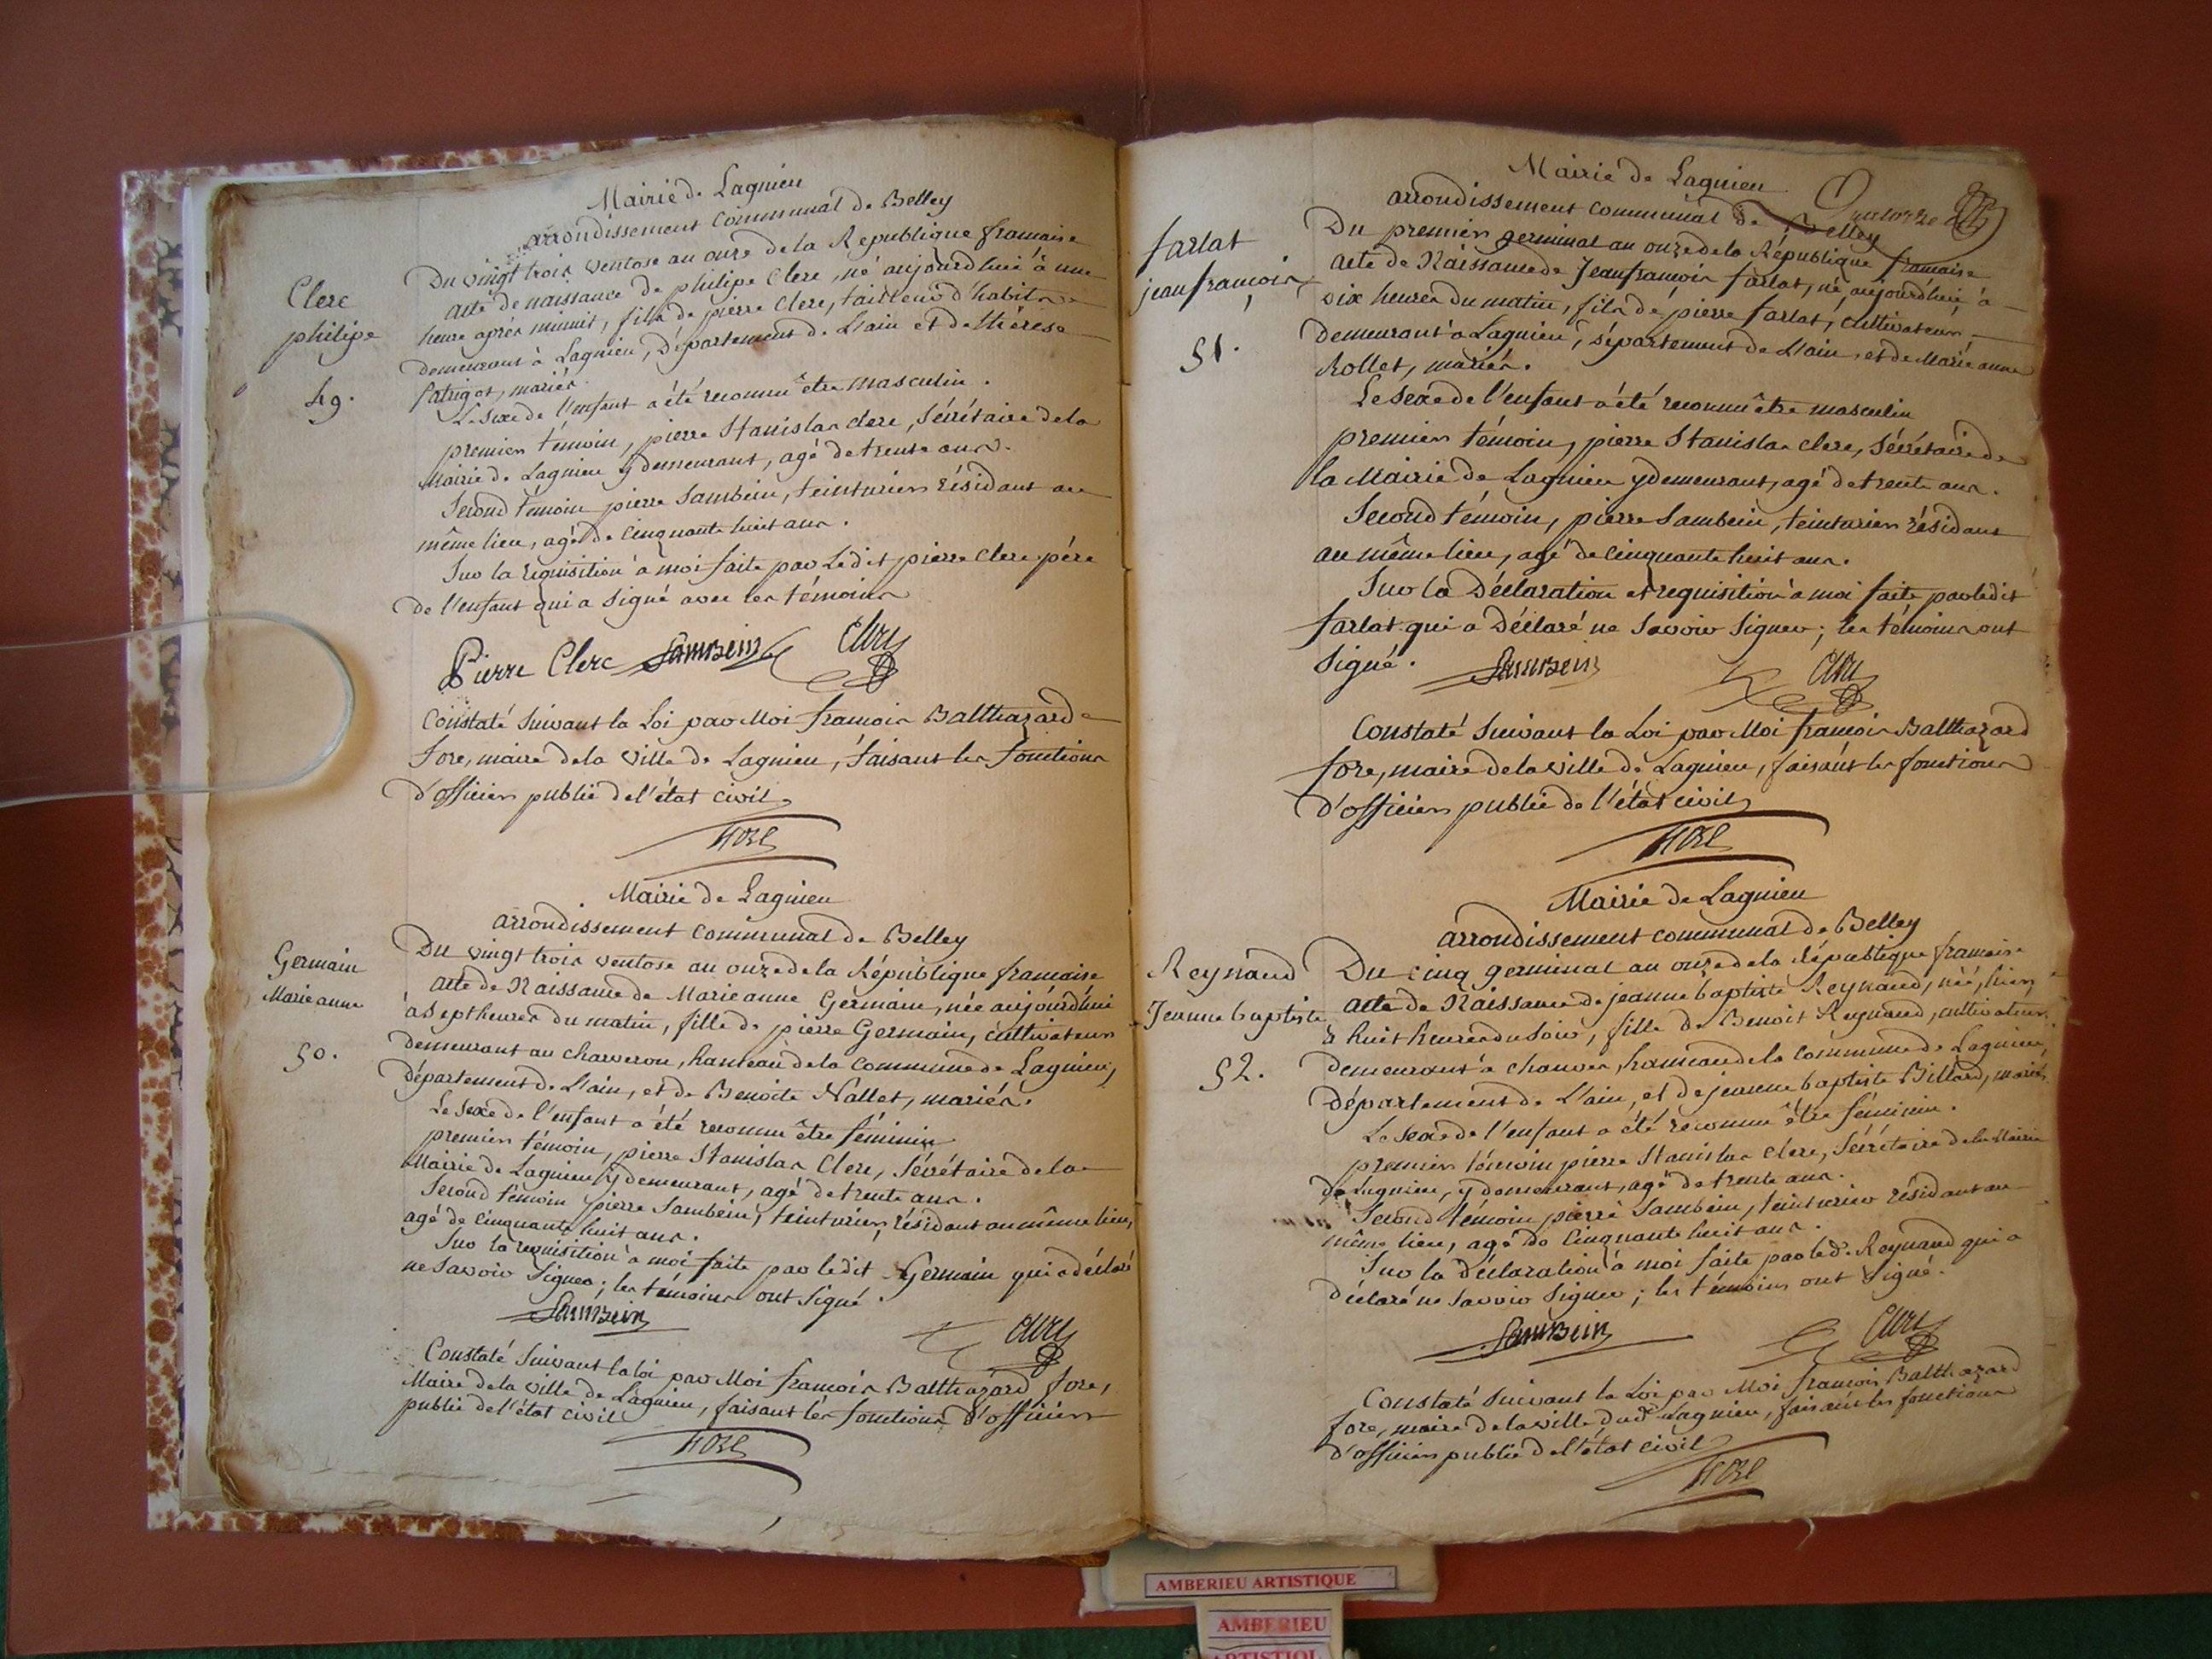 Mairie de Lagnieu
arrondissement communal de Belley
Clerc
philipe
49.
Du vingt trois ventose an onze de la République francaise
acte de naissance de philipe Clerc, né aujourd'hui à une
heure après minuit, fils de pierre Clerc, tailleur d'habits
demeurant à Lagnieu, département de L'ain et de thérèse
fatrigot, mariés.
Le sexe de l'enfant a été reconnu être masculin.
premier témoin, pierre Stanislas clerc, Sécrétaire de la
Mairie de Lagnieu y demeurant, agé de trente ans.
Second témoin pierre Sambein, teinturier résidant au
même lieu, agé de cinquante huit ans.
Sur la requisition à moi faite par Ledit pierre Clerc père
de l'enfant qui a signé avec les témoins
Pierre Clerc Sambein Clerc
Constaté suivant la Loi par Moi francois Balthazard
fore, maire de la ville de Lagnieu, faisant les fonctions
d'officier public de l'état civil
FORE
Mairie de Lagnieu
arrondissement communal de Belley
Germain
Marieanne
50.
Du vingt trois ventose an onze de la République francaise
acte de Naissance de Marieanne Germain, née aujourd'hui
à Sept heures du matin, fille de pierre Germain, cultivateur
demeurant au charveron, hameau de la commune de Lagnieu,
département de L'ain, et de Benoite Nallet, mariés.
Le sexe de l'enfant a été reconnu être féminin
premier témoin, pierre Stanislas Clerc, Sécrétaire de la
Mairie de Lagnieu y demeurant, agé de trente ans.
Second témoin pierre Sambein, teinturier, résidant au même lieu,
agé de cinquante huit ans.
Sur la requisition à moi faite par ledit Germain qui a déclaré
ne savoir Signer; les témoins ont signé.
Sambein Clerc
Constaté suivant la loi par Moi francois Balthazard fore,
Maire de la ville de Lagnieu, faisant les fonctions d'officier
public de l'état civil
FORE
Mairie de Lagnieu
arrondissement communal de Belley
quatorze
farlat
jeanfrançois
51.
Du premier germinal an onze de la République francaise
acte de Naissance de Jeanfrancois farlat, né aujourd'hui à
dix heures du matin, fils de pierre farlat, cultivateur
demeurant à Lagnieu, département de L'ain, et de Marieanne
Rollet, mariés.
Le Sexe de l'enfant a été reconnu être masculin
premier témoin, pierre Stanislas clerc, Sécrétaire de
la Mairie de Lagnieu y demeurant, agé de trente ans.
Second témoin, pierre Sambein, teinturier résidant
au même lieu, agé de cinquante huit ans.
Sur la Déclaration et requisition à moi faite par ledit
farlat qui a Déclaré ne Savoir Signer; les témoins ont
Signé.
Sambein Clerc
Constaté suivant la Loi par Moi francois Balthazard
fore, maire de la ville de Lagnieu, faisant les fonctions
d'officier public de l'état civil
FORE
Mairie de Lagnieu
arrondissement communal de Belley
Reynaud
Jeanne baptiste
52.
Du cinq germinal an onze de la République francaise
acte de Naissance de jeanne baptiste Reynaud, née, hier,
à huit heures du Soir, fille de Benoit Reynaud, cultivateur,
demeurant à chanves, hameau de la commune de Lagnieu,
département de L'ain, et de jeanne baptiste Billard, mariés.
Le Sexe de l'enfant a été reconnu être féminin.
premier témoin pierre Stanislas clerc, Sécrétaire de la Mairie
de Lagnieu, y demeurant, agé de trente ans.
Second témoin pierre Sambein, teinturier résidant au
même lieu, agé de cinquante huit ans.
Sur la déclaration à moi faite par led. Reynaud qui a
déclaré ne Savoir Signer; les témoins ont Signé.
Sambein Clerc
Constaté suivant la Loi par Moi francois Balthazard
fore, maire de la ville dud. Lagnieu, faisant les fonctions
d'officier public de l'état civil
FORE
AMBERIEU ARTISTIQUE
AMBERIEU
ARTISTIQ